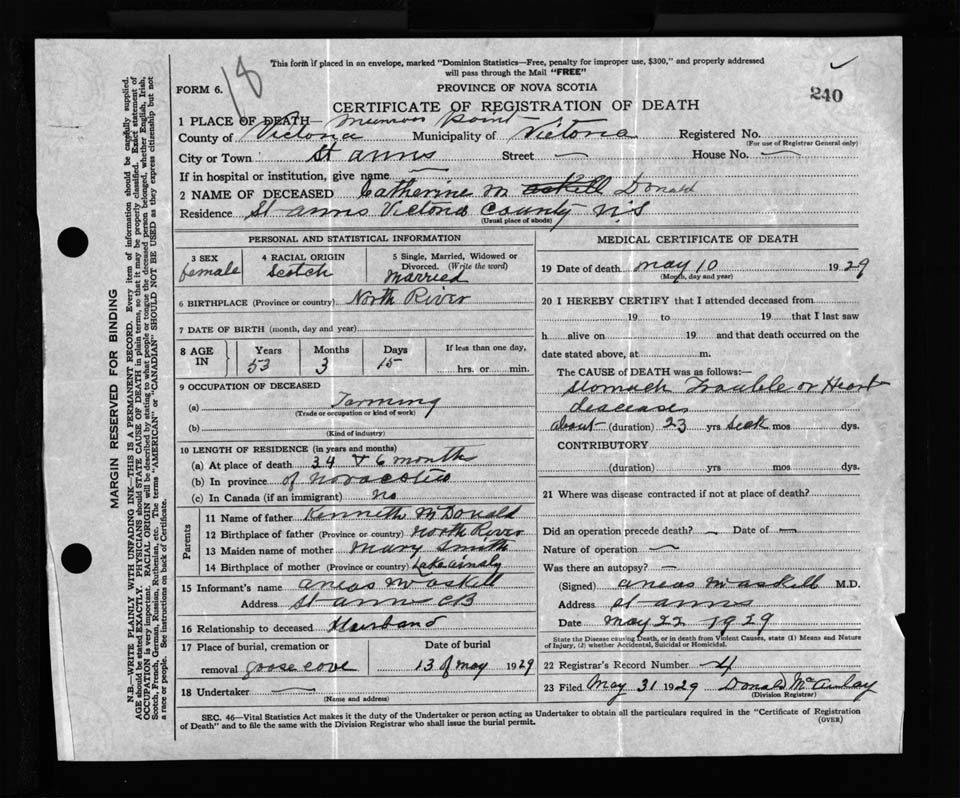 18
This form if placed in an envelope, marked "Dominion Statistics—Free, penalty for improper use, $300," and properly addressed
will pass through the Mail "FREE"
FORM 6.
PROVINCE OF NOVA SCOTIA
240
CERTIFICATE OF REGISTRATION OF DEATH
1 PLACE OF DEATH— Munroes Point
County of Victoria Municipality of Victoria Registered No.
(For use of Registrar General only)
City or Town St anns Street — House No. —
If in hospital or institution, give name —
2 NAME OF DECEASED Catherine M askill Donald
Residence St anns Victoria County N.S
(Usual place of abode)
PERSONAL AND STATISTICAL INFORMATION
3 SEX female
4 RACIAL ORIGIN Scotch
5 Single, Married, Widowed or
Divorced. (Write the word)
Married
6 BIRTHPLACE (Province or country) North River
7 DATE OF BIRTH (month, day and year)
8 AGE IN
Years Months Days If less than one day,
53 3 15 hrs. or min.
9 OCCUPATION OF DECEASED
(a) Farming
(Trade or occupation or kind of work)
(b)
(Kind of industry)
10 LENGTH OF RESIDENCE (in years and months)
(a) At place of death 34 & 6 month
(b) In province of
(c) In Canada (if an immigrant) no
Parents
11 Name of father Kenneth McDonald
12 Birthplace of father (Province or country) North River
13 Maiden name of mother Mary Smith
14 Birthplace of mother (Province or country) Lake ainsly
15 Informant's name aneas McAskill
Address St anns CB
16 Relationship to deceased Husband
17 Place of burial, cremation or
removal goose cove
Date of burial
13 of may 1929
18 Undertaker —
(Name and address)
MEDICAL CERTIFICATE OF DEATH
19 Date of death may 10 1929
(Month, day and year)
20 I HEREBY CERTIFY that I attended deceased from
19 to 19 that I last saw
h alive on 19 and that death occurred on the
date stated above, at m.
The CAUSE of DEATH was as follows:—
Stomach Trouble or Heart
deseases
about (duration) 23 yrs mos dys.
CONTRIBUTORY
(duration) yrs mos dys.
21 Where was disease contracted if not at place of death?
Did an operation precede death? — Date of —
Nature of operation —
Was there an autopsy? —
(Signed) aneas McAskill M.D.
Address St anns
Date may 22 1929
State the Disease causing Death, or in death from Violent Causes, state (1) Means and Nature
of Injury, (2) whether Accidental, Suicidal or Homicidal.
22 Registrar's Record Number 4
23 Filed May 31 1929 Donald McAulay
(Division Registrar)
SEC. 46—Vital Statistics Act makes it the duty of the Undertaker or person acting as Undertaker to obtain all the particulars required in the "Certificate of Registration
of Death" and to file the same with the Division Registrar who shall issue the burial permit.
(OVER)
MARGIN RESERVED FOR BINDING
N.B.—WRITE PLAINLY WITH UNFADING INK—THIS IS A PERMANENT RECORD. Every item of information should be carefully supplied.
AGE should be stated EXACTLY. PHYSICIANS should STATE CAUSE OF DEATH in plain terms, so that it may be properly classified. Exact statement of
OCCUPATION is very important. RACIAL ORIGIN will be described by stating to what people or tongue the deceased person belonged, whether English, Irish,
Scotch, French, German, Russian, Ruthenian, etc. The terms "AMERICAN" or "CANADIAN" SHOULD NOT BE USED as they express citizenship but not
a race or people. See instructions on back of Certificate.